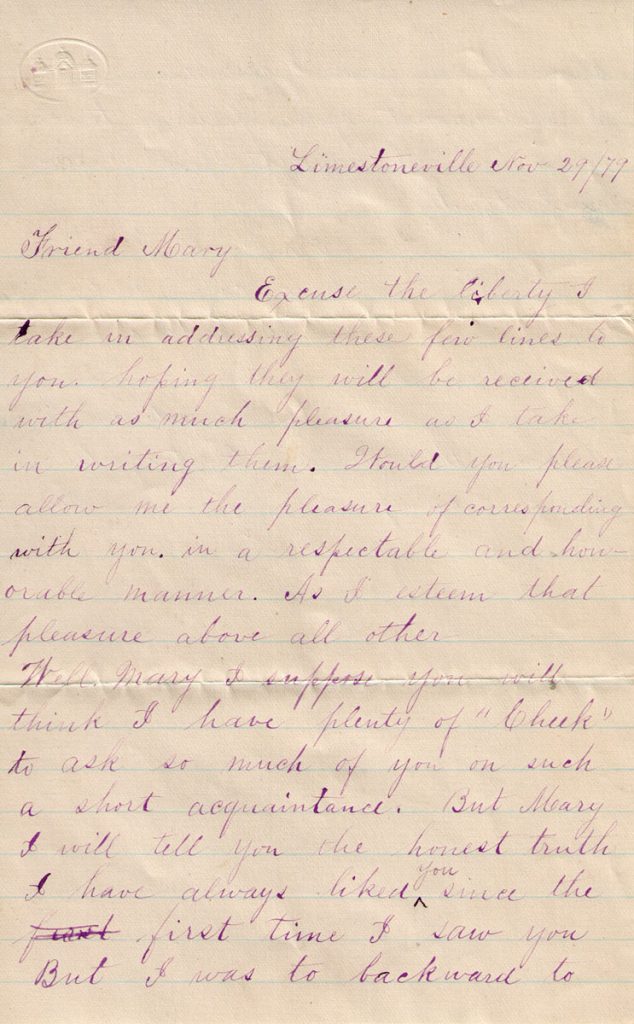 Limestoneville Nov 29/79
Friend Mary
Excuse the liberty I
take in addressing these few lines to
you. hoping they will be received
with as much pleasure as I take
in writing them. Would you please
allow me the pleasure of corresponding
with you. in a respectable and hon-
orable manner. As I esteem that
pleasure above all other
Well. Mary I suppose you will
think I have plenty of "Cheek"
to ask so much of you on such
a short acquaintance. But Mary
I will tell you the honest truth
I have always liked you since the
first time I saw you
But I was to backward to